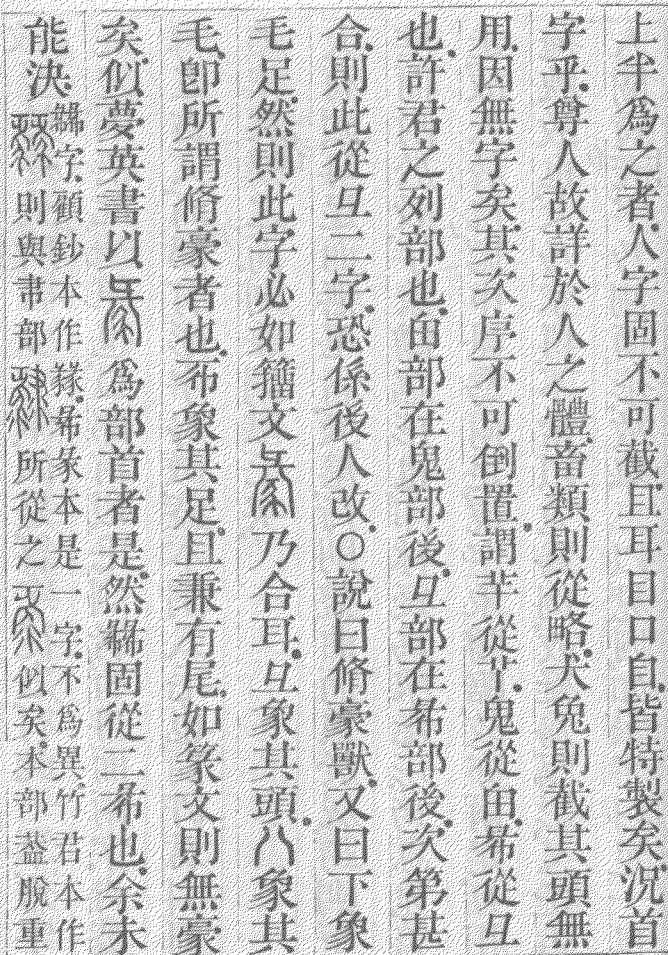 上半爲之者人字固不可截且耳目口自皆特製矣況首
字乎尊人故詳於人之體畜類則從略犬兔則截其頭無
用因無字矣其次序不可倒置謂芉從𦫳鬼從甶㣇從彑
也許君之列部也甶部在鬼部後彑部在㣇部後次第甚
合則此從彑二字恐係後人改○說曰脩豪獸又曰下象
毛足然則此字必如籒文乃合耳彑象其頭八象其
毛卽所謂脩豪者也𠕁象其足且兼有尾如篆文則無豪
矣似夢英書以爲部首者是然䰆固從二㣇也余未
能決
字顧鈔本作㣇彖本是一字不爲異竹君本作
則與㣇部所從之似矣本部葢脫重